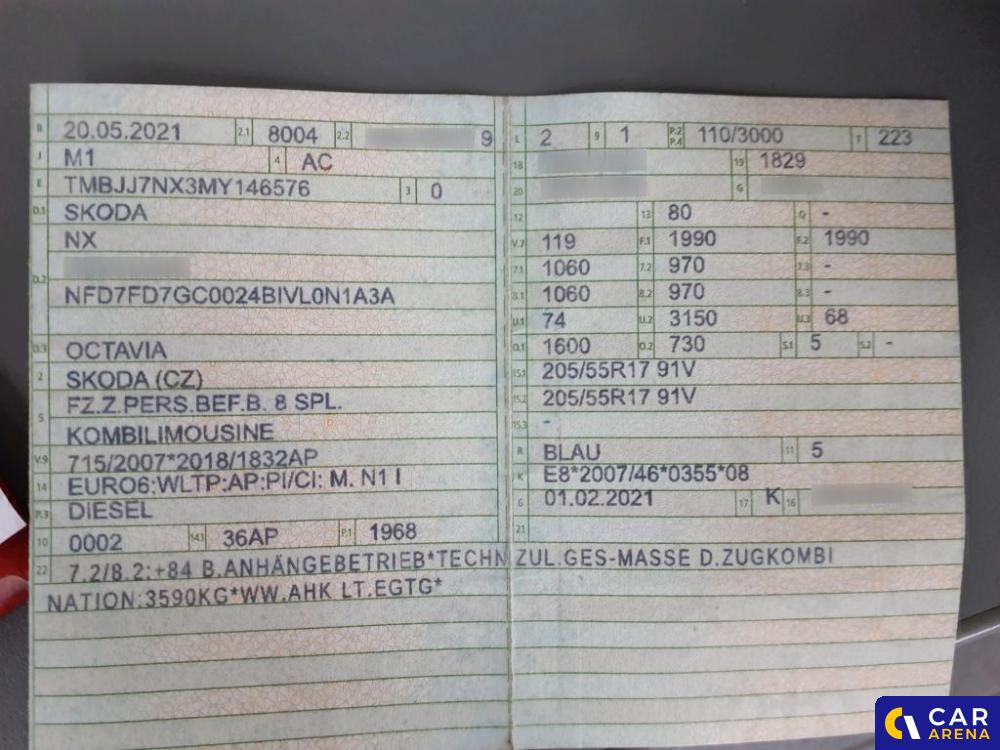 B 20.05.2021 2.1 8004 2.2 9
J M1 4 AC
E TMBJJ7NX3MY146576 3 0
D.1 SKODA
NX
D.2
NFD7FD7GC0024BIVL0N1A3A
D.3 OCTAVIA
2 SKODA (CZ)
5 FZ.Z.PERS.BEF.B. 8 SPL.
KOMBILIMOUSINE
V.9 715/2007*2018/1832AP
14 EURO6:WLTP:AP:PI/CI: M. N1 I
P.3 DIESEL
10 0002 14.1 36AP P.1 1968
22 7.2/8.2:+84 B.ANHÄNGEBETRIEB*TECHN ZUL.GES-MASSE D.ZUGKOMBI
NATION:3590KG*WW.AHK LT.EGTG*
L 2 9 1 P.2 P.4 110/3000 T 223
18 19 1829
20 G
12 13 80 Q -
V.7 119 F.1 1990 F.2 1990
7.1 1060 7.2 970 7.3 -
8.1 1060 8.2 970 8.3 -
U.1 74 U.2 3150 U.3 68
O.1 1600 O.2 730 S.1 5 S.2 -
15.1 205/55R17 91V
15.2 205/55R17 91V
15.3 -
R BLAU 11 5
K E8*2007/46*0355*08
6 01.02.2021 17 K 16
21
CAR
ARENA